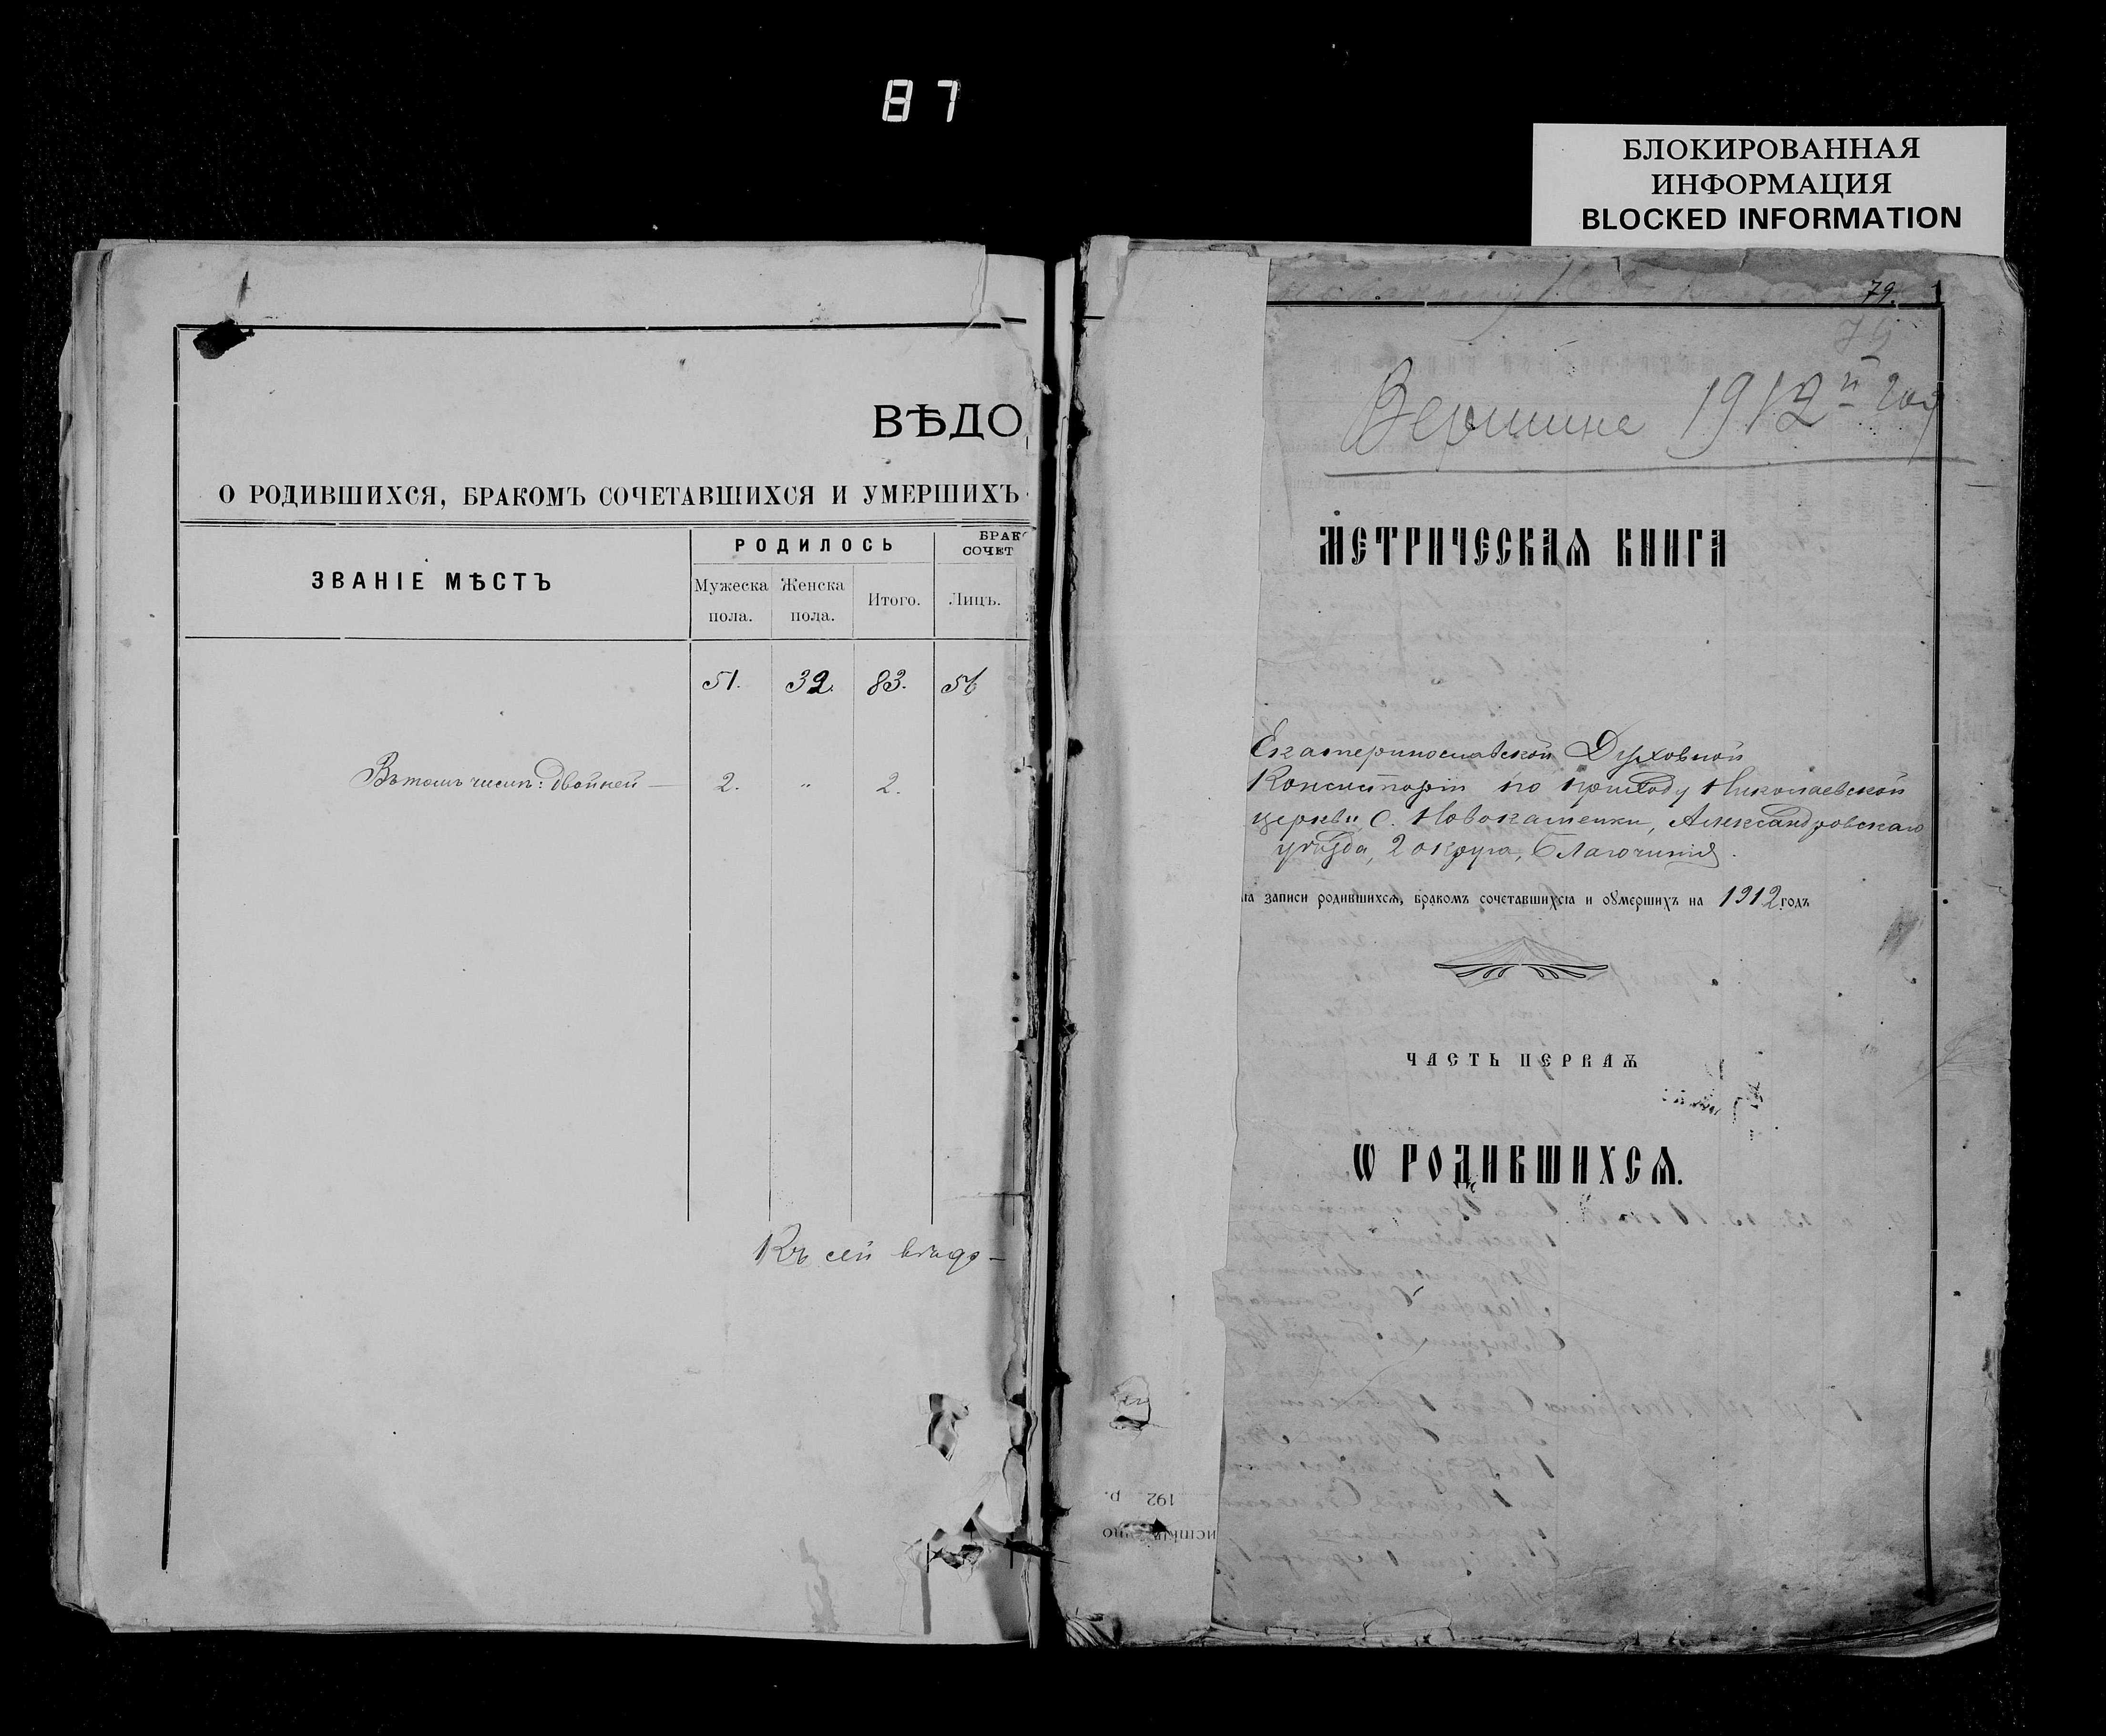 87
БЛОКИРОВАННАЯ
ИНФОРМАЦИЯ
BLOCKED INFORMATION
ВѢДО
О РОДИВШИХСЯ, БРАКОМЪ СОЧЕТАВШИХСЯ И УМЕРШИХЪ
ЗВАНІЕ МѢСТЪ
РОДИЛОСЬ
БРАК
СОЧЕТ
Мужеска пола.
Женска пола.
Итого.
Лицъ.
51. 32. 83. 56
Въ томъ числѣ: двойней — 2. „ 2.
Къ сей вѣдо-
79.
79
1912 й год
МЕТРИЧЕСКАѦ КНИГА
Екатеринославской Духовной
Консисторіи по приходу Николаевской
церкви с. Новокаменки, Александровскаго
уѣзда, 2 округа, благочинія.
записи родившихсѧ, бракомъ сочетавшихсѧ и оумершихъ на 1912 годъ
ЧАСТЬ ПЕРВАѦ
Ѡ РОДИВШИХСѦ.
192 р.